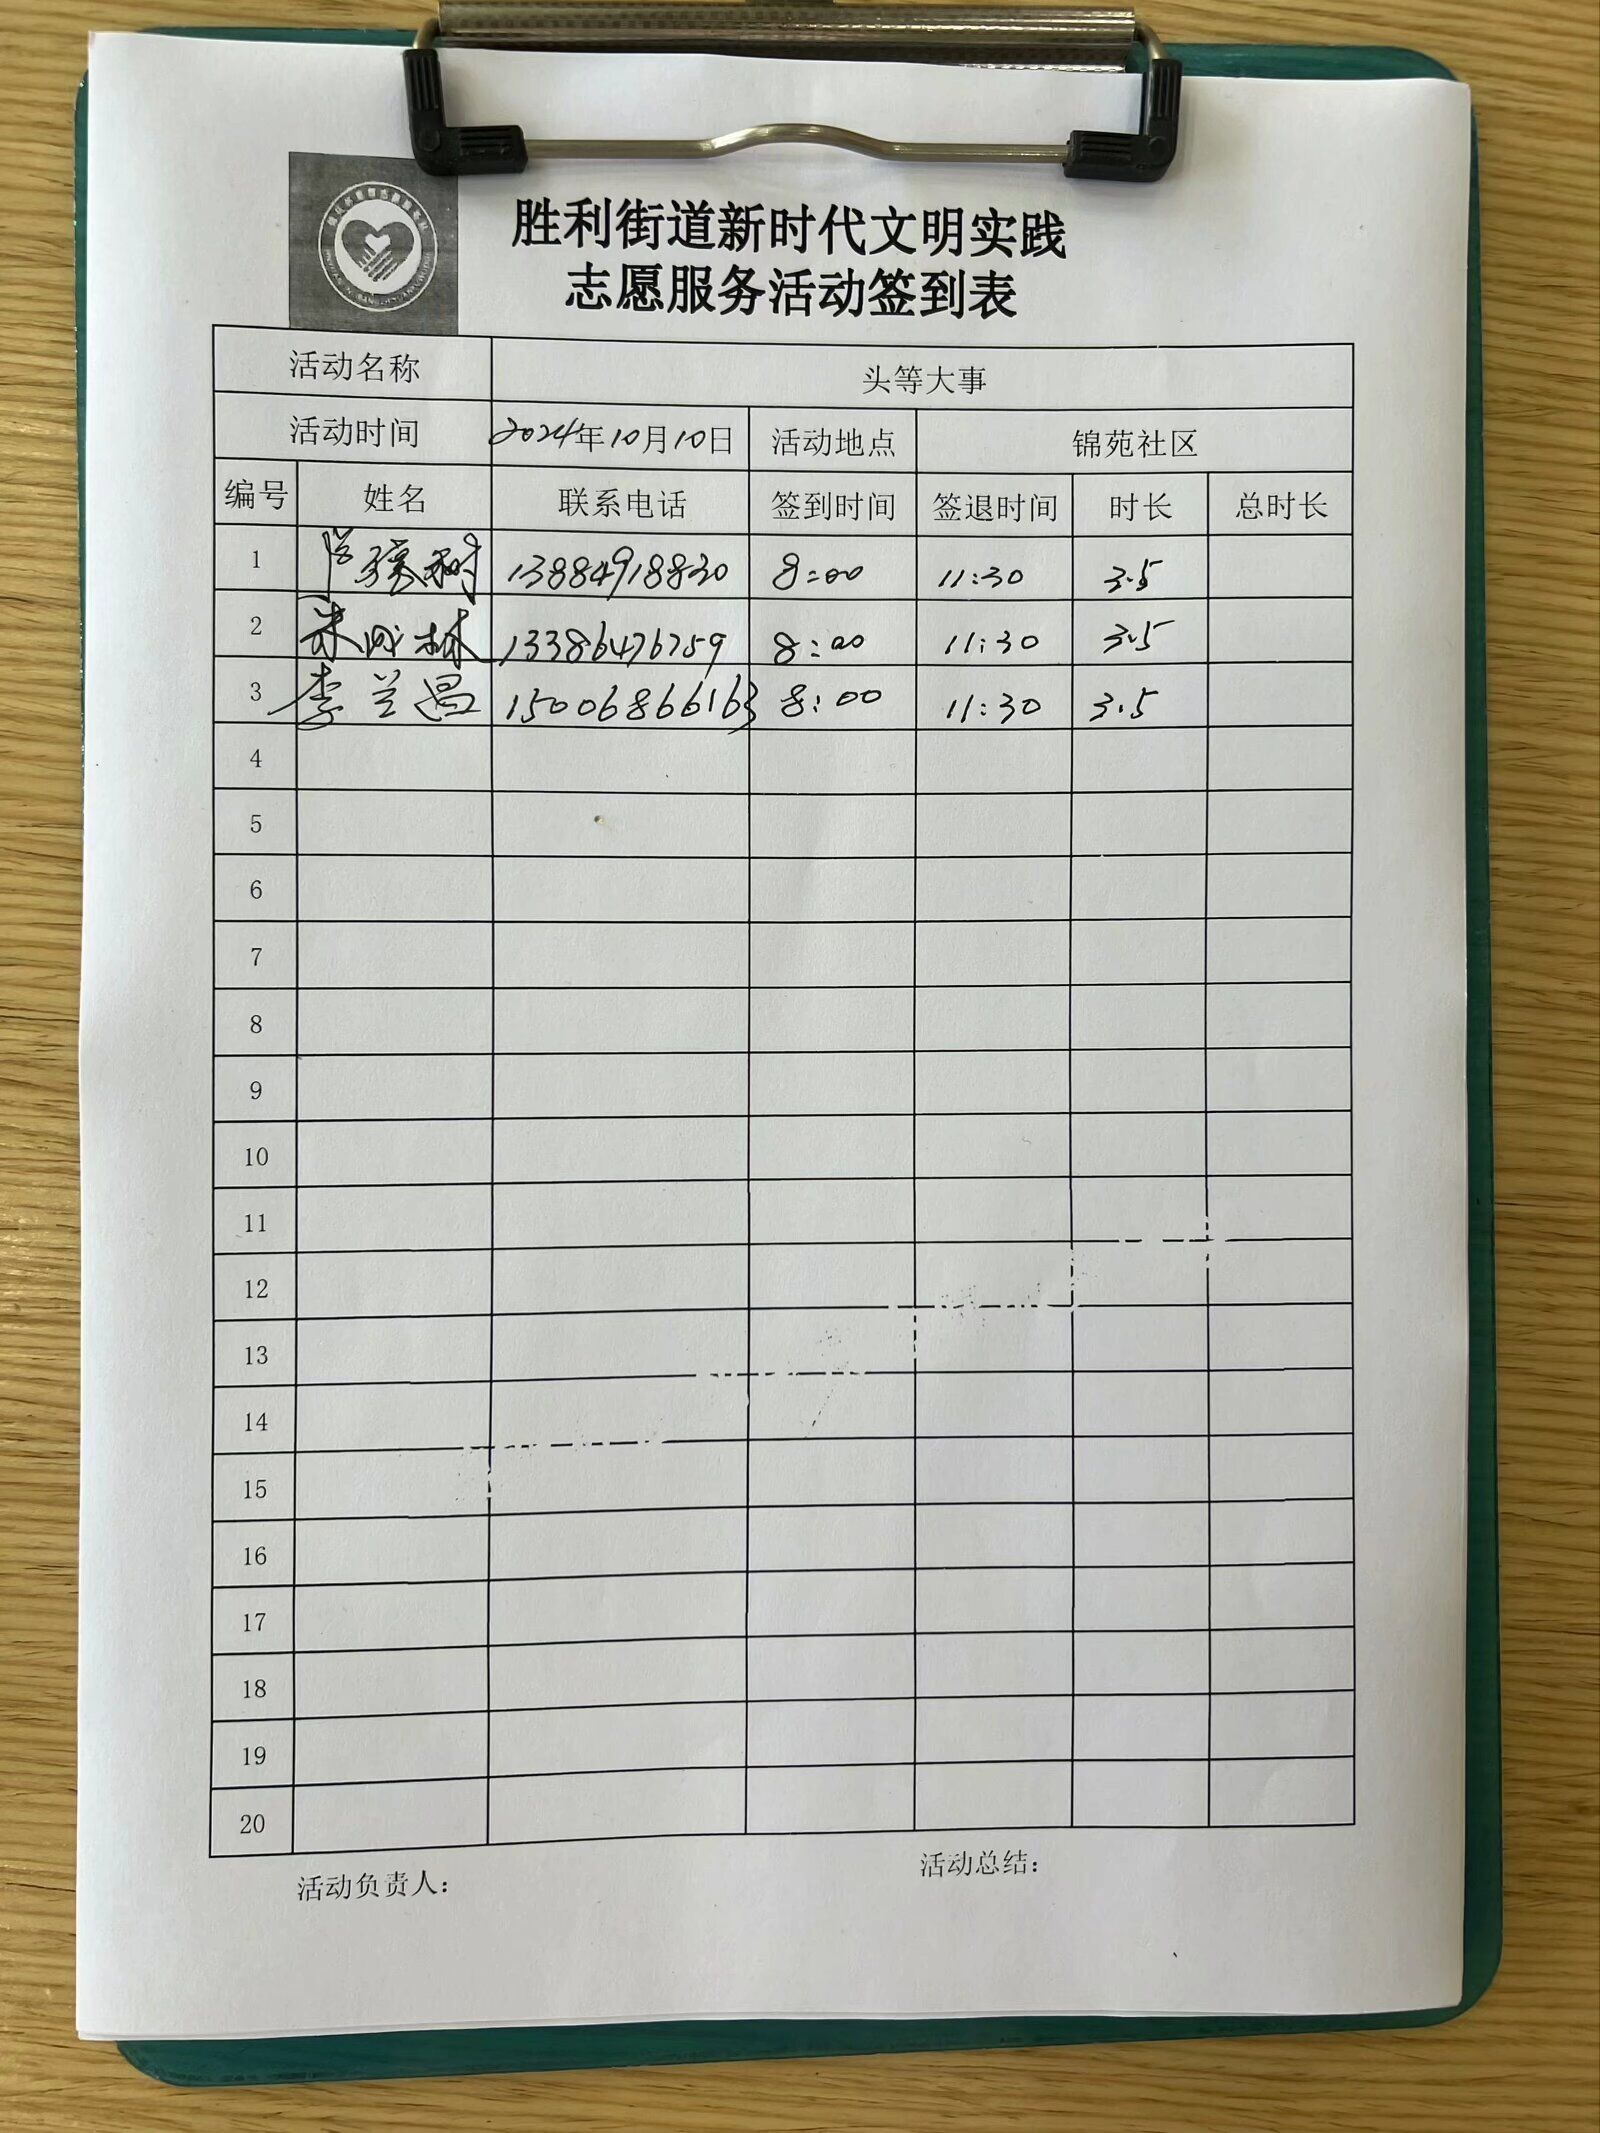 胜利街道新时代文明实践
志愿服务活动签到表
活动名称 头等大事
活动时间 2024年10月10日 活动地点 锦苑社区
编号 姓名 联系电话 签到时间 签退时间 时长 总时长
1 13884918830 8:00 11:30 3.5
2 朱成林 13386476759 8:00 11:30 3.5
3 李兰昌 15006866163 8:00 11:30 3.5
4
5
6
7
8
9
10
11
12
13
14
15
16
17
18
19
20
活动负责人: 活动总结: